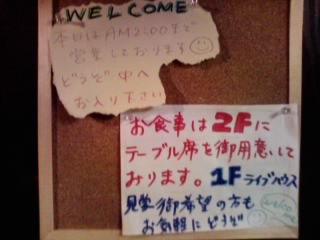 WELCOME
本日はAM2:00まで
営業しております
どうぞ中へ
お入り下さい
お食事は2Fに
テーブル席を御用意して
おります。1Fライブハウス
見学御希望の方も
お気軽にどうぞ
welcome